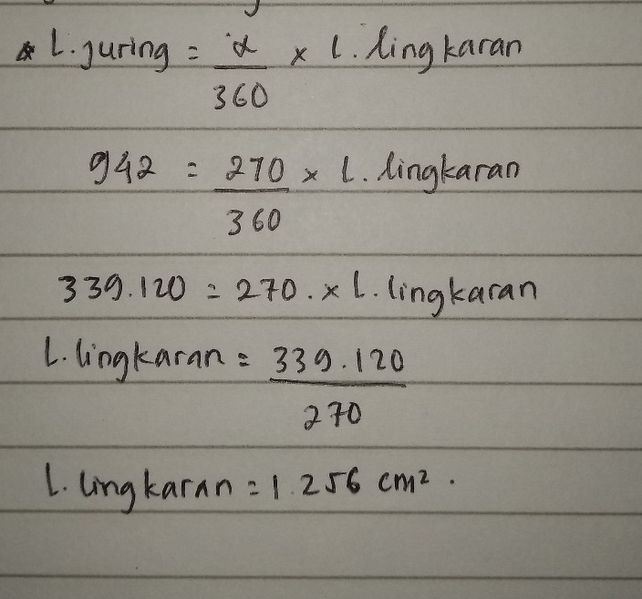 * L. juring = α/360 × L. lingkaran
942 = 270/360 × L. lingkaran
339.120 = 270. × L. lingkaran
L. lingkaran = 339.120/270
L. lingkaran = 1.256 cm² .